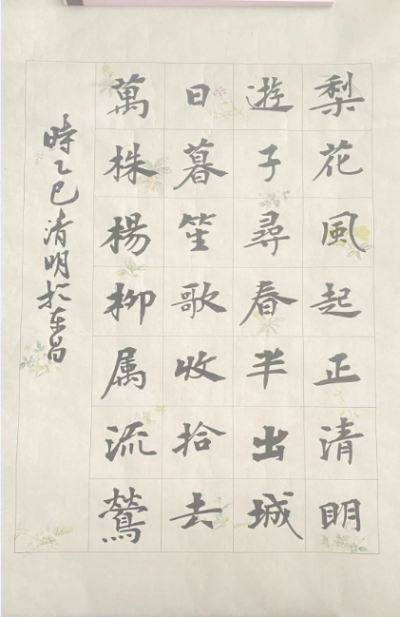 梨花風起正清明
遊子尋春半出城
日暮笙歌收拾去
萬株楊柳属流鶯
時乙巳清明於东昌